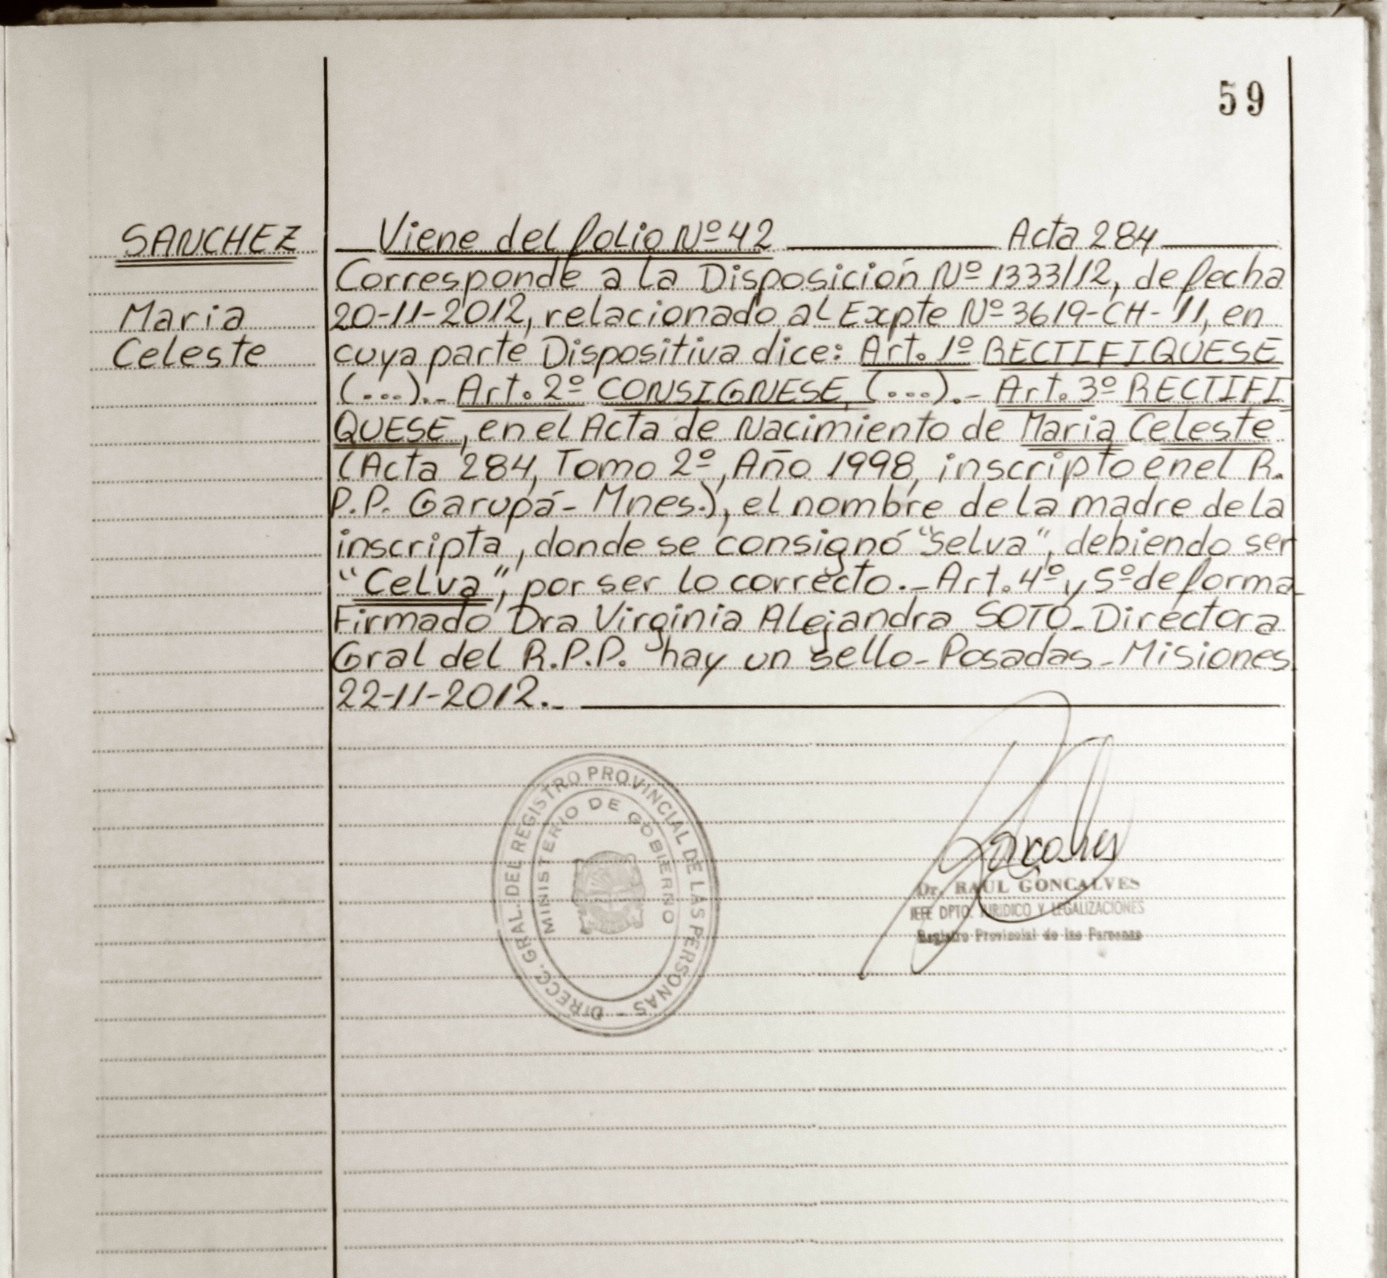 59
SANCHEZ
Maria
Celeste
Viene del folio Nº 42 Acta 284
Corresponde a la Disposición Nº 1333/12, de fecha
20-11-2012, relacionado al Expte Nº 3619-CH-11, en
cuya parte Dispositiva dice: Art. 1º RECTIFIQUESE
(...).- Art. 2º CONSIGNESE, (...).- Art. 3º RECTIFI
QUESE, en el Acta de Nacimiento de Maria Celeste
(Acta 284, Tomo 2º, Año 1998, inscripto en el R.
P.P. Garupá- Mnes.), el nombre de la madre de la
inscripta, donde se consignó "Selva", debiendo ser
"Celva", por ser lo correcto.- Art. 4º y 5º de forma
Firmado Dra Virginia Alejandra SOTO- Directora
Gral del R.P.P. hay un sello- Posadas- Misiones
22-11-2012.-
DIRECC. GRAL. DEL REGISTRO PROVINCIAL DE LAS PERSONAS -
MINISTERIO DE GOBIERNO
Goncalves
Dr. RAUL GONCALVES
JEFE DPTO. JURIDICO Y LEGALIZACIONES
Registro Provincial de las Personas